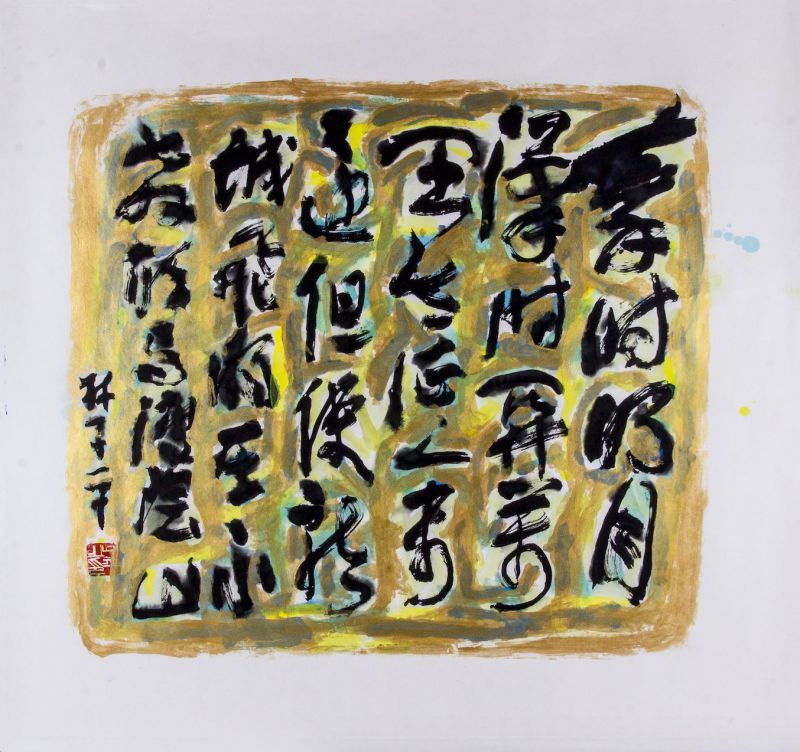 秦时明月
汉时关万
里长征人未
还但使龙
城飞将在不
教胡马渡阴山